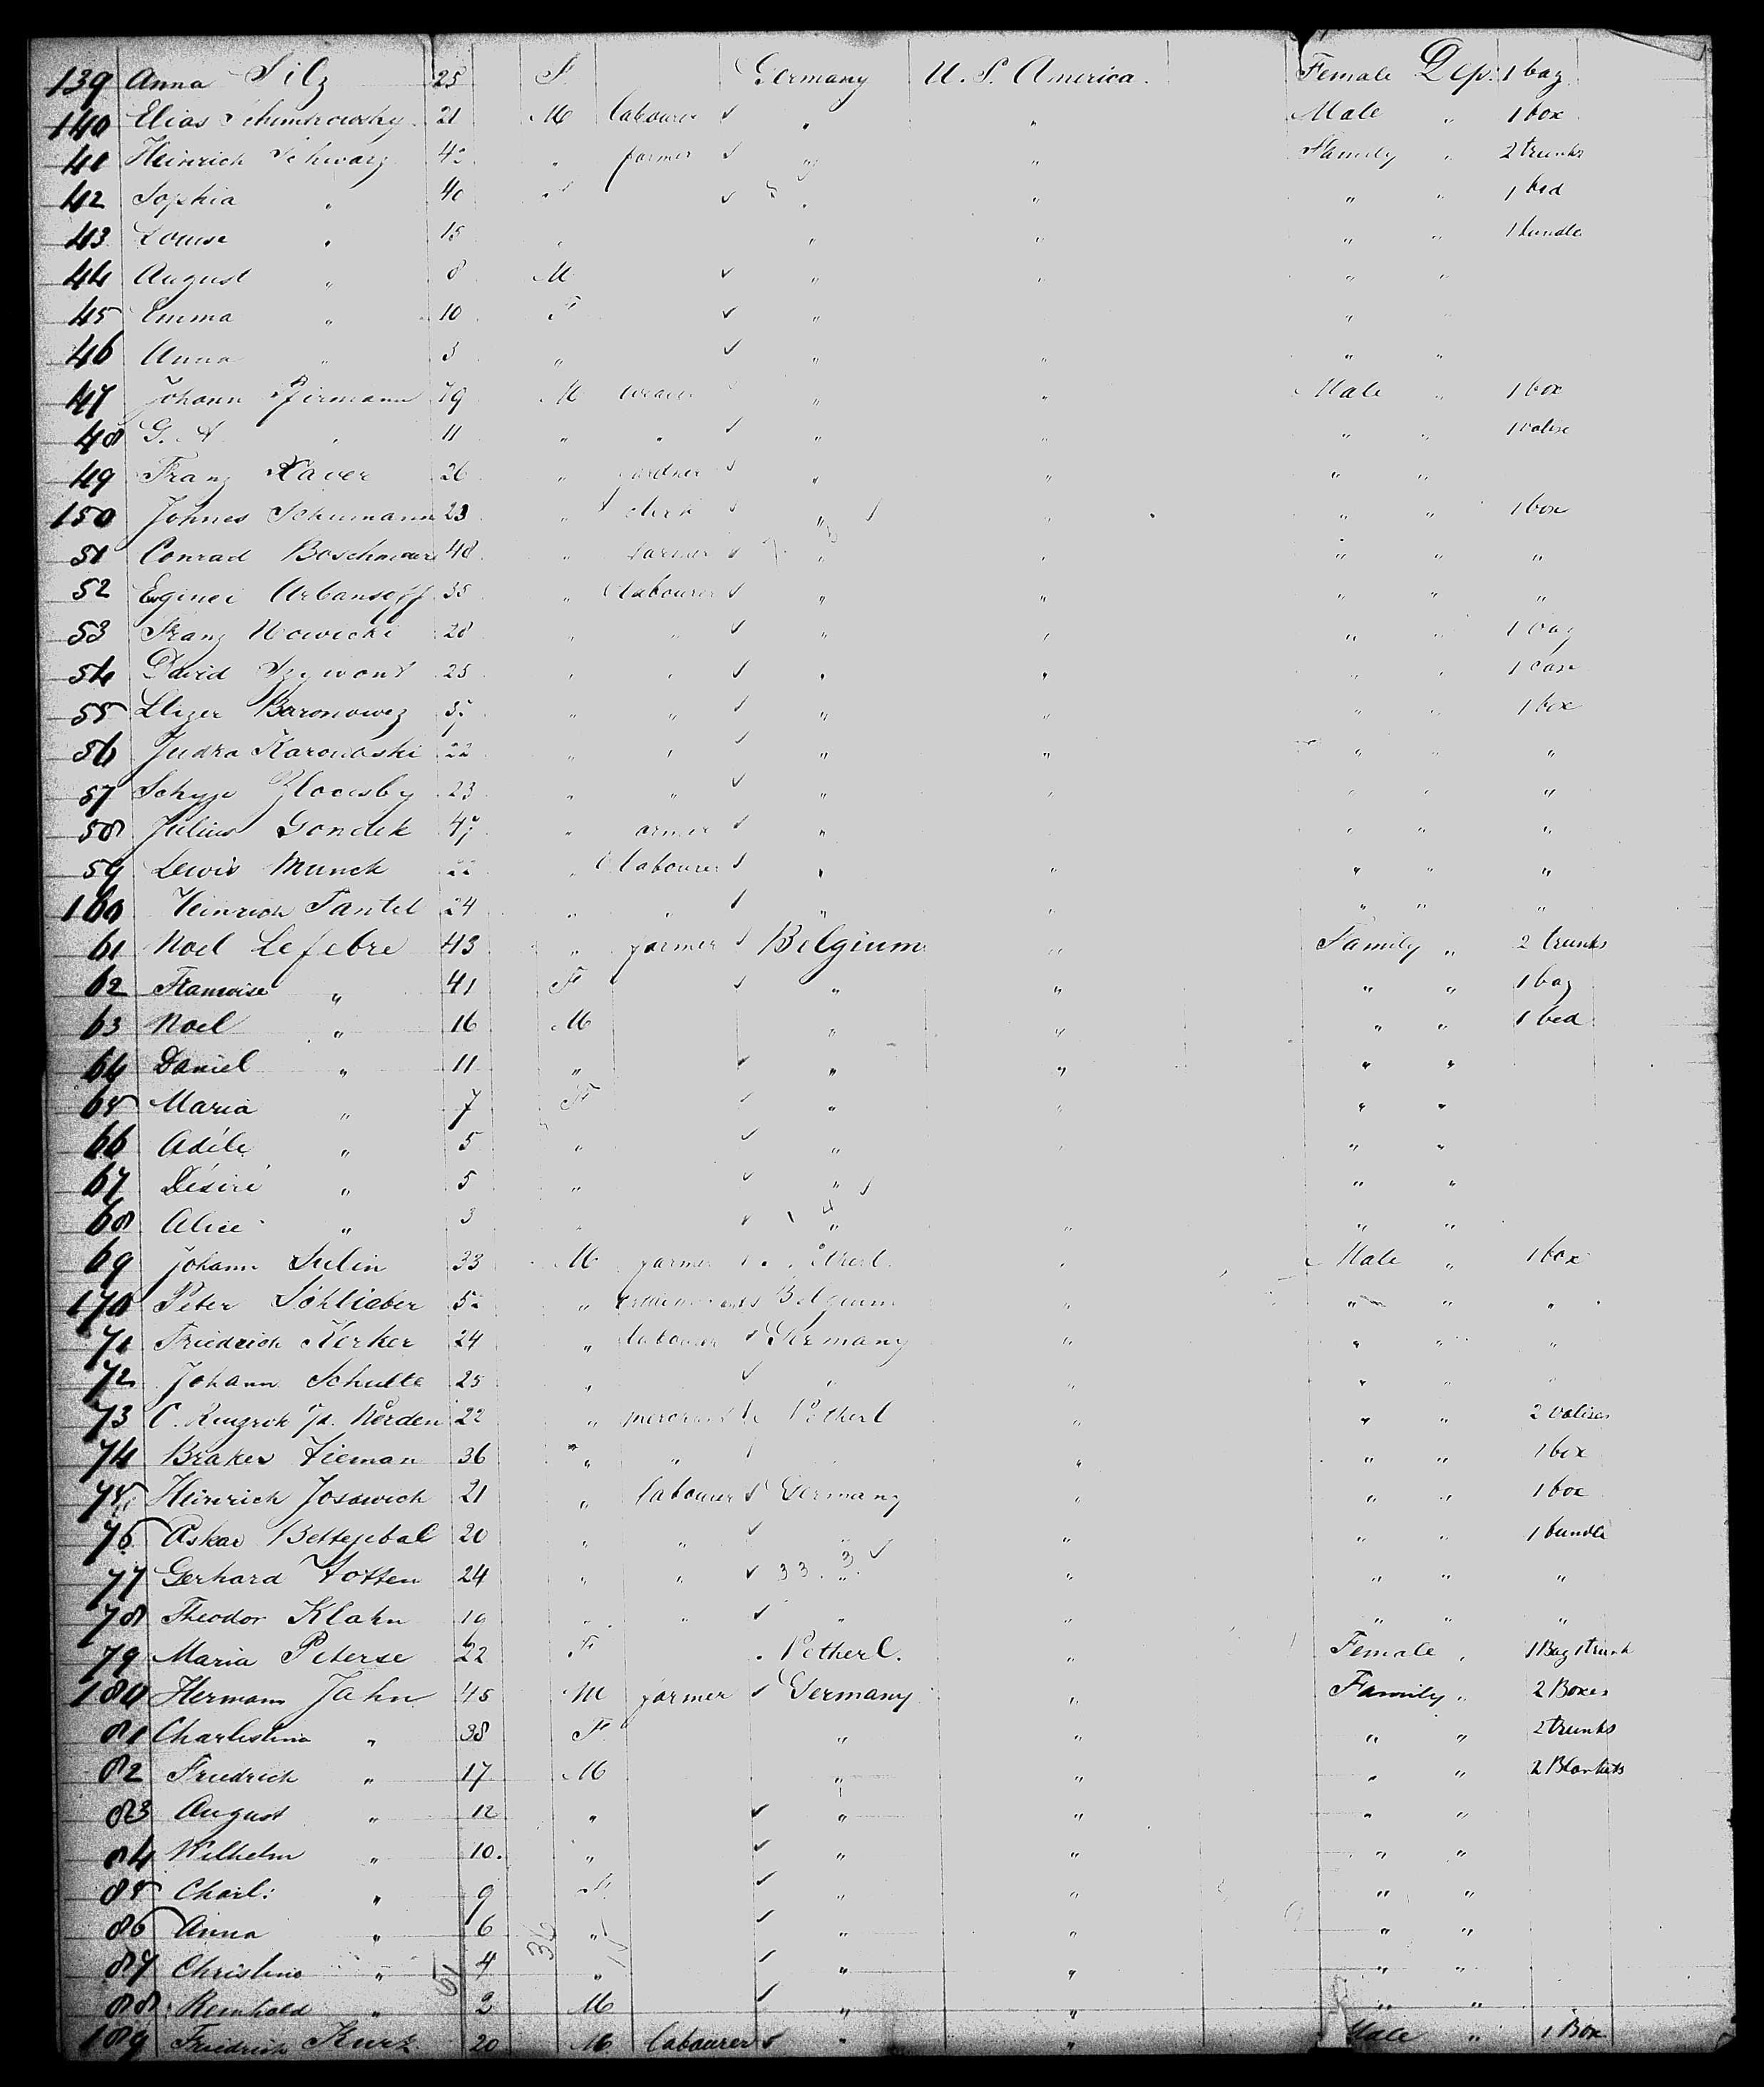 139 Anna Silz 25 F Germany U. S. America. Female Dep. 1 bag
140 Elias 21 M labourer " " Male " 1 box
41 Heinrich Schwarz 42 " farmer " " Family " 2 trunks
42 Sophia " 40 F " " " " 1 bed
43 Louise " 15 " " " " " 1 bundle
44 August " 8 M " " " "
45 Emma " 10 F " " "
46 Anna " 3 " " " " "
47 Johann Pirmann 79 M weaver " " Male " 1 box
48 G. A " 11 " " " " " " 1 valise
49 Franz Xaver 26 " gardner " " " "
150 Johnes Schumann 23 " clerk " " " " 1 box
51 Conrad 48 " farmer " " " " "
52 Arbansoff 35 " labourer " " " " "
53 Franz Nowicki 28 " " " " " " 1 bag
54 David 25 " " " " " " 1 case
55 Baronowez " " " " " " 1 box
56 Judka Karowaski 22 " " " " " " "
57 23 " " " " " " "
58 Julius Gondek " farmer " " " "
59 Lewis Munck 22 " labourer " " " " "
160 Heinrich Tantel 24 " " " " " " "
61 Noel Lefebre 43 " farmer Belgium " Family " 2 trunks
62 Francoise " 41 F " " " " 1 bag
63 Noel " 16 M " " " " 1 bed
64 Daniel " 11 " " " " "
65 Maria " 7 F " " " "
66 Adéle " 5 " " " " "
67 Désiré " 5 " " " "
68 Alice " 3 " " " " "
69 Johann Sulin 33 M farmer " Male " 1 box
170 Peter Söhlieber " Belgium " " " "
71 Friedrich Kerker 24 " labourer Germany " " " "
72 Johann Schulte 25 " " " " "
73 C. 22 " merchant " " " 2 valises
74 Brakes Tieman 36 " " " " " 1 box
75 Heinrich Joswich 21 " labourer Germany " " " 1 box
76 Askar 20 " " " " " 1 bundle
77 Gerhard Totten 24 " " 33. " " " " "
78 Theodor Klahn 19 " " " " " " "
79 Maria Peterse 22 F " Female " 1 Bag 1 trunk
180 Hermann Jahn 45 M farmer Germany " Family " 2 Boxes
81 " 38 F " " " " 2 trunks
82 Friedrich " 17 M " " " " 2 Blankets
83 August " 12 " " " " "
84 Wilhelm " 10. " " " " "
85 Charl: " 9 F " " " "
86 Anna " 6 " " " "
87 Christina " 4 " " " " "
88 Reinhold " 2 M " " " "
189 Friedrich Kurz 20 M labourer " " Male " 1 Box